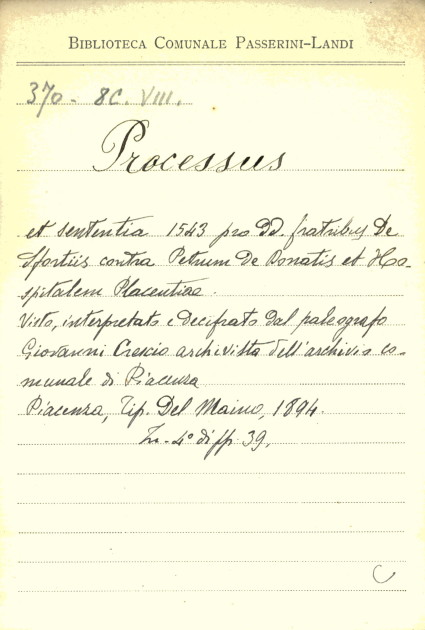 BIBLIOTECA COMUNALE PASSERINI-LANDI
370 - 8C. VIII.
Processus
et sententia 1543 pro DD. fratribus De
Sfortiis contra Petrum De Donatis et Ho-
spitalem Placentiae.
Visto, interpretato e decifrato dal paleografo
Giovanni Crescio archivista dell'archivio co-
munale di Piacenza
Piacenza, Tip. Del Maino, 1894.
In-4° di pp. 39.
C